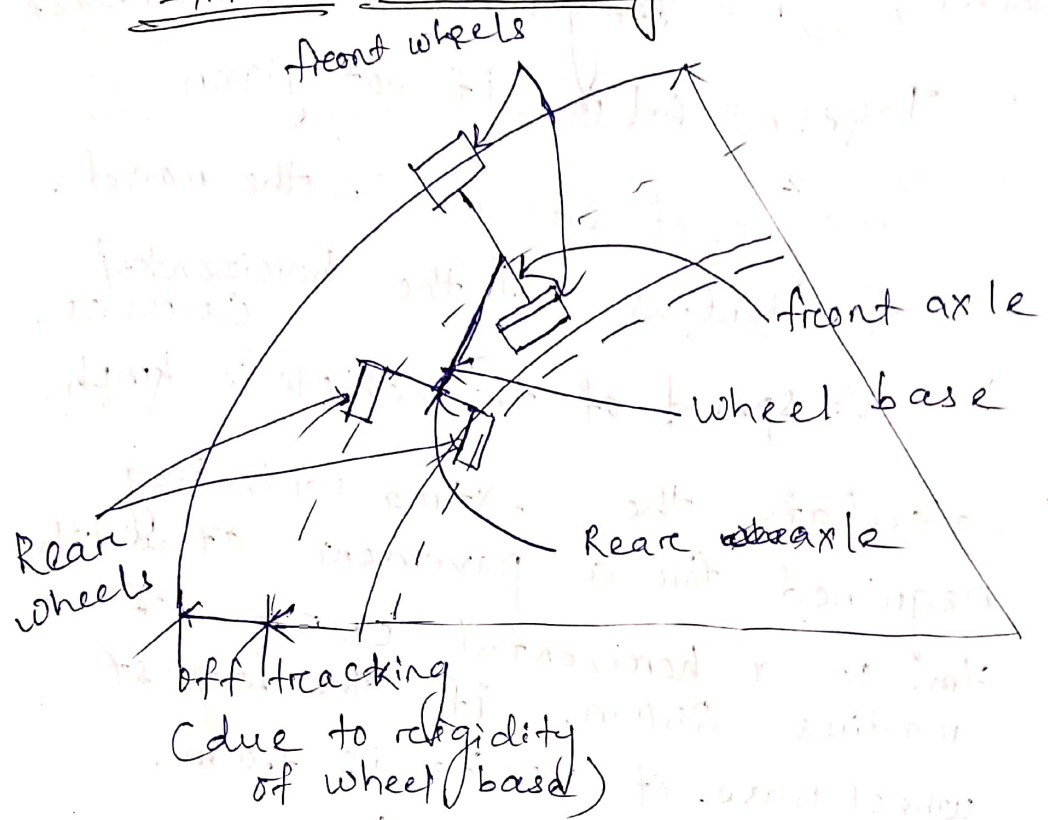 front wheels
front axle
wheel base
Rear axle
Rear
wheels
off tracking
(due to rigidity
of wheel base)